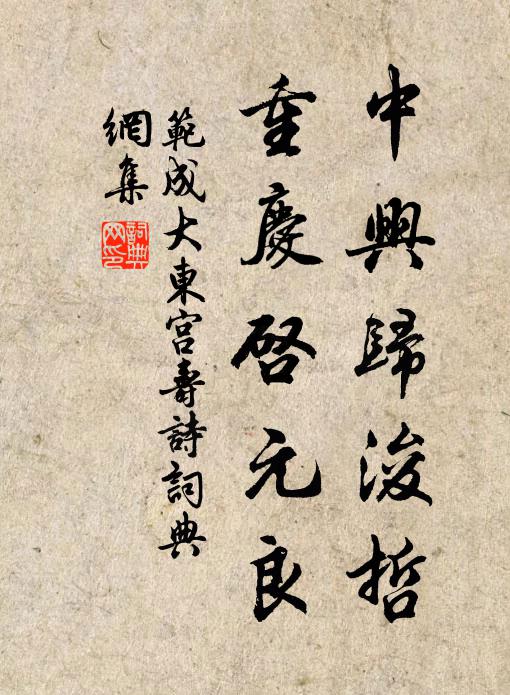 中興歸濬哲
重慶啓元良
範成大東宮壽詩詞典
網集
詞典
网印